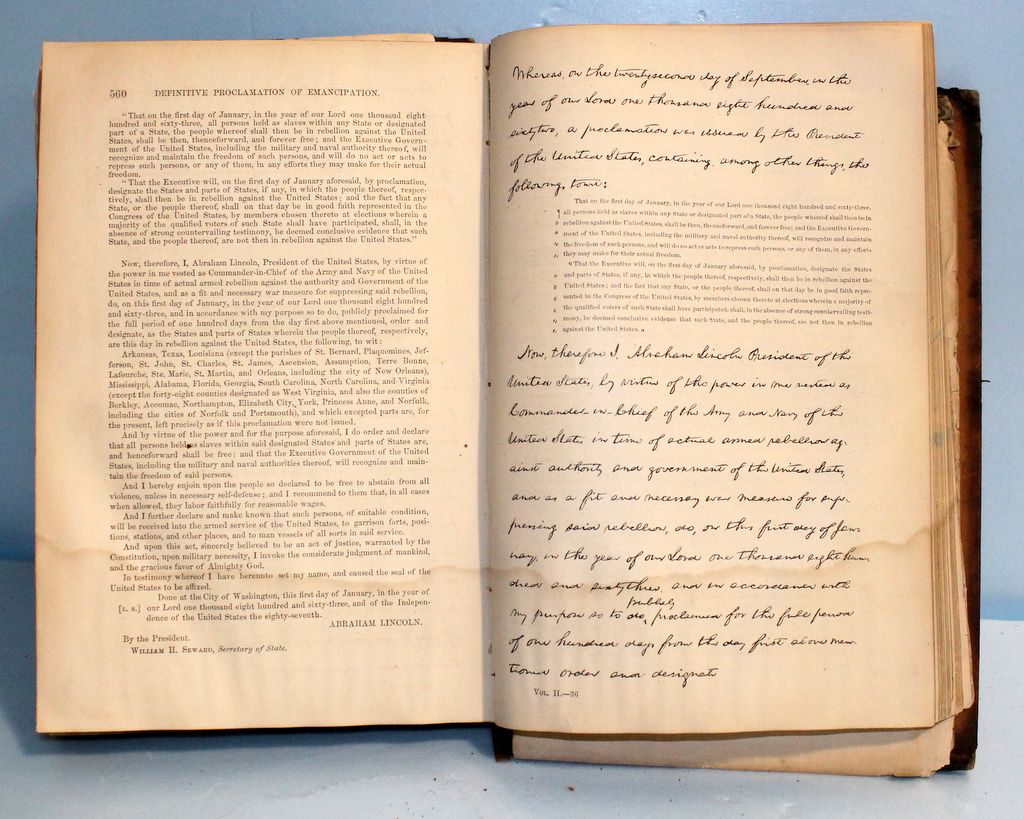 560 DEFINITIVE PROCLAMATION OF EMANCIPATION.
"That on the first day of January, in the year of our Lord one thousand eight
hundred and sixty-three, all persons held as slaves within any State or designated
part of a State, the people whereof shall then be in rebellion against the United
States, shall be then, thenceforward, and forever free; and the Executive Govern-
ment of the United States, including the military and naval authority thereof, will
recognize and maintain the freedom of such persons, and will do no act or acts to
repress such persons, or any of them, in any efforts they may make for their actual
freedom.
"That the Executive will, on the first day of January aforesaid, by proclamation,
designate the States and parts of States, if any, in which the people thereof, respec-
tively, shall then be in rebellion against the United States; and the fact that any
State, or the people thereof, shall on that day be in good faith represented in the
Congress of the United States, by members chosen thereto at elections wherein a
majority of the qualified voters of such State shall have participated, shall, in the
absence of strong countervailing testimony, be deemed conclusive evidence that such
State, and the people thereof, are not then in rebellion against the United States."
Now, therefore, I, Abraham Lincoln, President of the United States, by virtue of
the power in me vested as Commander-in-Chief of the Army and Navy of the United
States in time of actual armed rebellion against the authority and Government of the
United States, and as a fit and necessary war measure for suppressing said rebellion,
do, on this first day of January, in the year of our Lord one thousand eight hundred
and sixty-three, and in accordance with my purpose so to do, publicly proclaimed for
the full period of one hundred days from the day first above mentioned, order and
designate, as the States and parts of States wherein the people thereof, respectively,
are this day in rebellion against the United States, the following, to wit:
Arkansas, Texas, Louisiana (except the parishes of St. Bernard, Plaquemines, Jef-
ferson, St. John, St. Charles, St. James, Ascension, Assumption, Terre Bonne,
Lafourche, Ste. Marie, St. Martin, and Orleans, including the city of New Orleans),
Mississippi, Alabama, Florida, Georgia, South Carolina, North Carolina, and Virginia
(except the forty-eight counties designated as West Virginia, and also the counties of
Berkley, Accomac, Northampton, Elizabeth City, York, Princess Anne, and Norfolk,
including the cities of Norfolk and Portsmouth), and which excepted parts are, for
the present, left precisely as if this proclamation were not issued.
And by virtue of the power and for the purpose aforesaid, I do order and declare
that all persons held as slaves within said designated States and parts of States are,
and henceforward shall be free; and that the Executive Government of the United
States, including the military and naval authorities thereof, will recognize and main-
tain the freedom of said persons.
And I hereby enjoin upon the people so declared to be free to abstain from all
violence, unless in necessary self-defense; and I recommend to them that, in all cases
when allowed, they labor faithfully for reasonable wages.
And I further declare and make known that such persons, of suitable condition,
will be received into the armed service of the United States, to garrison forts, posi-
tions, stations, and other places, and to man vessels of all sorts in said service.
And upon this act, sincerely believed to be an act of justice, warranted by the
Constitution, upon military necessity, I invoke the considerate judgment of mankind,
and the gracious favor of Almighty God.
In testimony whereof I have hereunto set my name, and caused the seal of the
United States to be affixed.
Done at the City of Washington, this first day of January, in the year of
[L. S.] our Lord one thousand eight hundred and sixty-three, and of the Indepen-
dence of the United States the eighty-seventh.
ABRAHAM LINCOLN.
By the President.
WILLIAM H. SEWARD, Secretary of State.
Whereas, on the twentysecond day of September, in the
year of our Lord one thousand eight hundred and
sixtytwo, a proclamation was issued by the President
of the United States, containing, among other things, the
following, towit:
That on the first day of January, in the year of our Lord one thousand eight hundred and sixty-three,
all persons held as slaves within any State or designated part of a State, the people whereof shall then be in
rebellion against the United States, shall be then, thenceforward, and forever free; and the Executive Govern-
ment of the United States, including the military and naval authority thereof, will recognize and maintain
the freedom of such persons, and will do no act or acts to repress such persons, or any of them, in any efforts
they may make for their actual freedom.
"That the Executive will, on the first day of January aforesaid, by proclamation, designate the States
and parts of States, if any, in which the people thereof, respectively, shall then be in rebellion against the
United States; and the fact that any State, or the people thereof, shall on that day be in good faith repre-
sented in the Congress of the United States, by members chosen thereto at elections wherein a majority of
the qualified voters of such State shall have participated, shall, in the absence of strong countervailing testi-
mony, be deemed conclusive evidence that such State, and the people thereof, are not then in rebellion
against the United States."
Now, therefore I, Abraham Lincoln President of the
United States, by virtue of the power in me vested as
Commander-in-Chief of the Army and Navy of the
United States in time of actual armed rebellion ag-
ainst authority and government of the United States,
and as a fit and necessary war measure for sup-
pressing said rebellion, do, on this first day of Jan-
uary, in the year of our Lord one thousand eight hun-
dred and sixtythree, and in accordance with
publicly
my purpose so to do, proclaimed for the full period
of one hundred days, from the day first above men-
tioned order and designate
VOL. II.—36